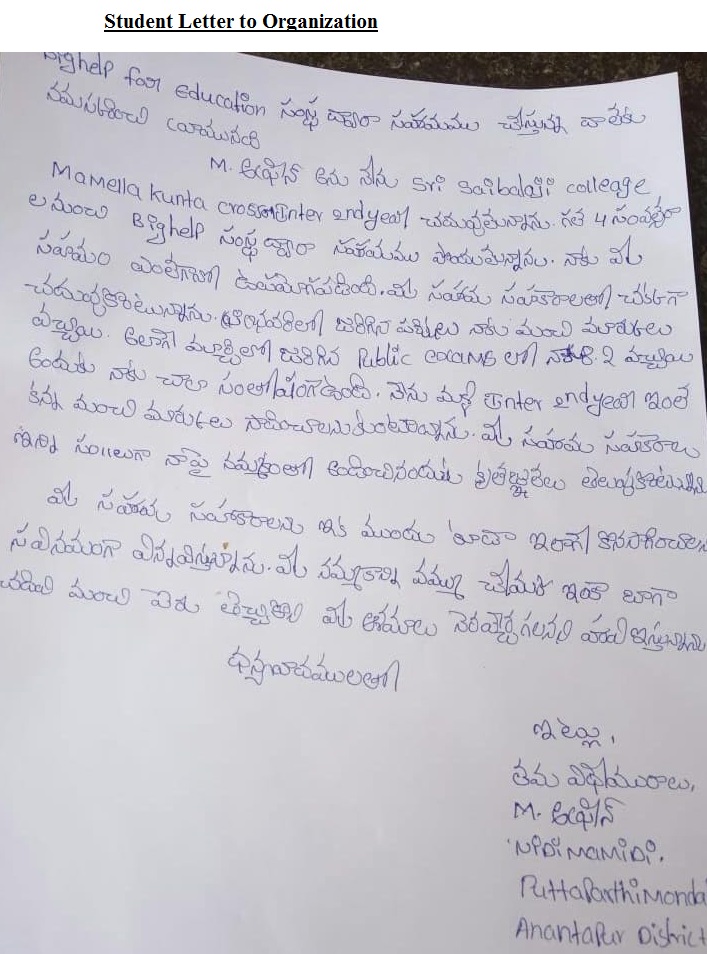 Student Letter to Organization
Bighelp for education సంస్థ ద్వారా సహాయము చేస్తున్న వారికు
నమస్కరించి వ్రాయునది
M. అఫ్రీన్ అను నేను Sri Saibalaji colleage
Mamella kunta cross Inter 2nd year చదువుతున్నాను. గత 4 సంవత్సరా
ల నుంచి Bighelp సంస్థ ద్వారా సహాయము పొందుతున్నాను. నాకు మీ
సహాయం ఎంతగానో ఉపయోగపడింది. మీ సహాయ సహకారాలతో చక్కగా
చదువుకుంటున్నాను. జరిగిన పరీక్షలు నాకు మంచి మార్కులు
వచ్చాయి. అలాగే మార్చిలో జరిగిన Public exams లో నాకు 8.2 వచ్చాయి
అందుకు నాకు చాలా సంతోషంగా ఉంది. నేను మళ్లీ Inter 2nd year ఇంత
కన్న మంచి మార్కులు సాధించాలనుకుంటున్నాను. మీ సహాయ సహకారాలు
ఇన్ని సం||లుగా నాపై నమ్మకంతో అందించినందుకు కృతజ్ఞతలు తెలుపుకుంటున్నాను
మీ సహాయ సహకారాలను ఇక ముందు కూడా ఇలాగే కొనసాగించాలని
సవినయంగా విన్నవిస్తున్నాను. మీ నమ్మకాన్ని వమ్ము చేయక ఇంకా బాగా
చదివి మంచి పేరు తెచ్చుకొని మీ ఆశయాలు నెరవేర్చగలనని హామి ఇస్తున్నాను
ధన్యవాదములతో
ఇట్లు,
తమ విధేయురాలు,
M. అఫ్రీన్
NiDiMAMiDi.
PuttaParthi Manda
Anantapur District